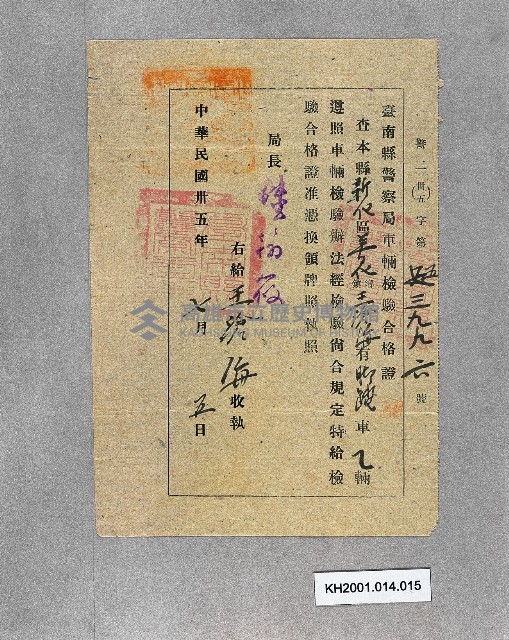 警二(卅五)字第 三九九六號
臺南縣警察局車輛檢驗合格證
查本縣新化區善化鎮王 海有腳踏車乙輛
遵照車輛檢驗辦法經檢驗尙合規定特給檢
驗合格證准憑換領牌照執照
局長
右給王 海收執
中華民國卅五年七月五日
高雄市立歷史博物館
KAOHSIUNG MUSEUM OF HISTORY
KH2001.014.015